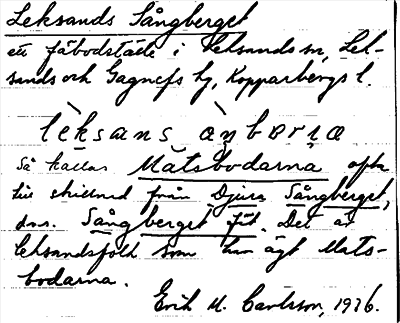 Leksands Sångberget
ett fäbodställe i Leksands sn, Lek-
sands och Gagnefs tg, Kopparbergs l.
lèksans àŋbærɳa
Så kallas Matsbodarna ofta
till skillnad från Djura Sångberget,
dvs. Sångberget fbd. Det är
leksandsfolk som har ägt Mats-
bodarna.
Erik M. Carlsson, 1976.